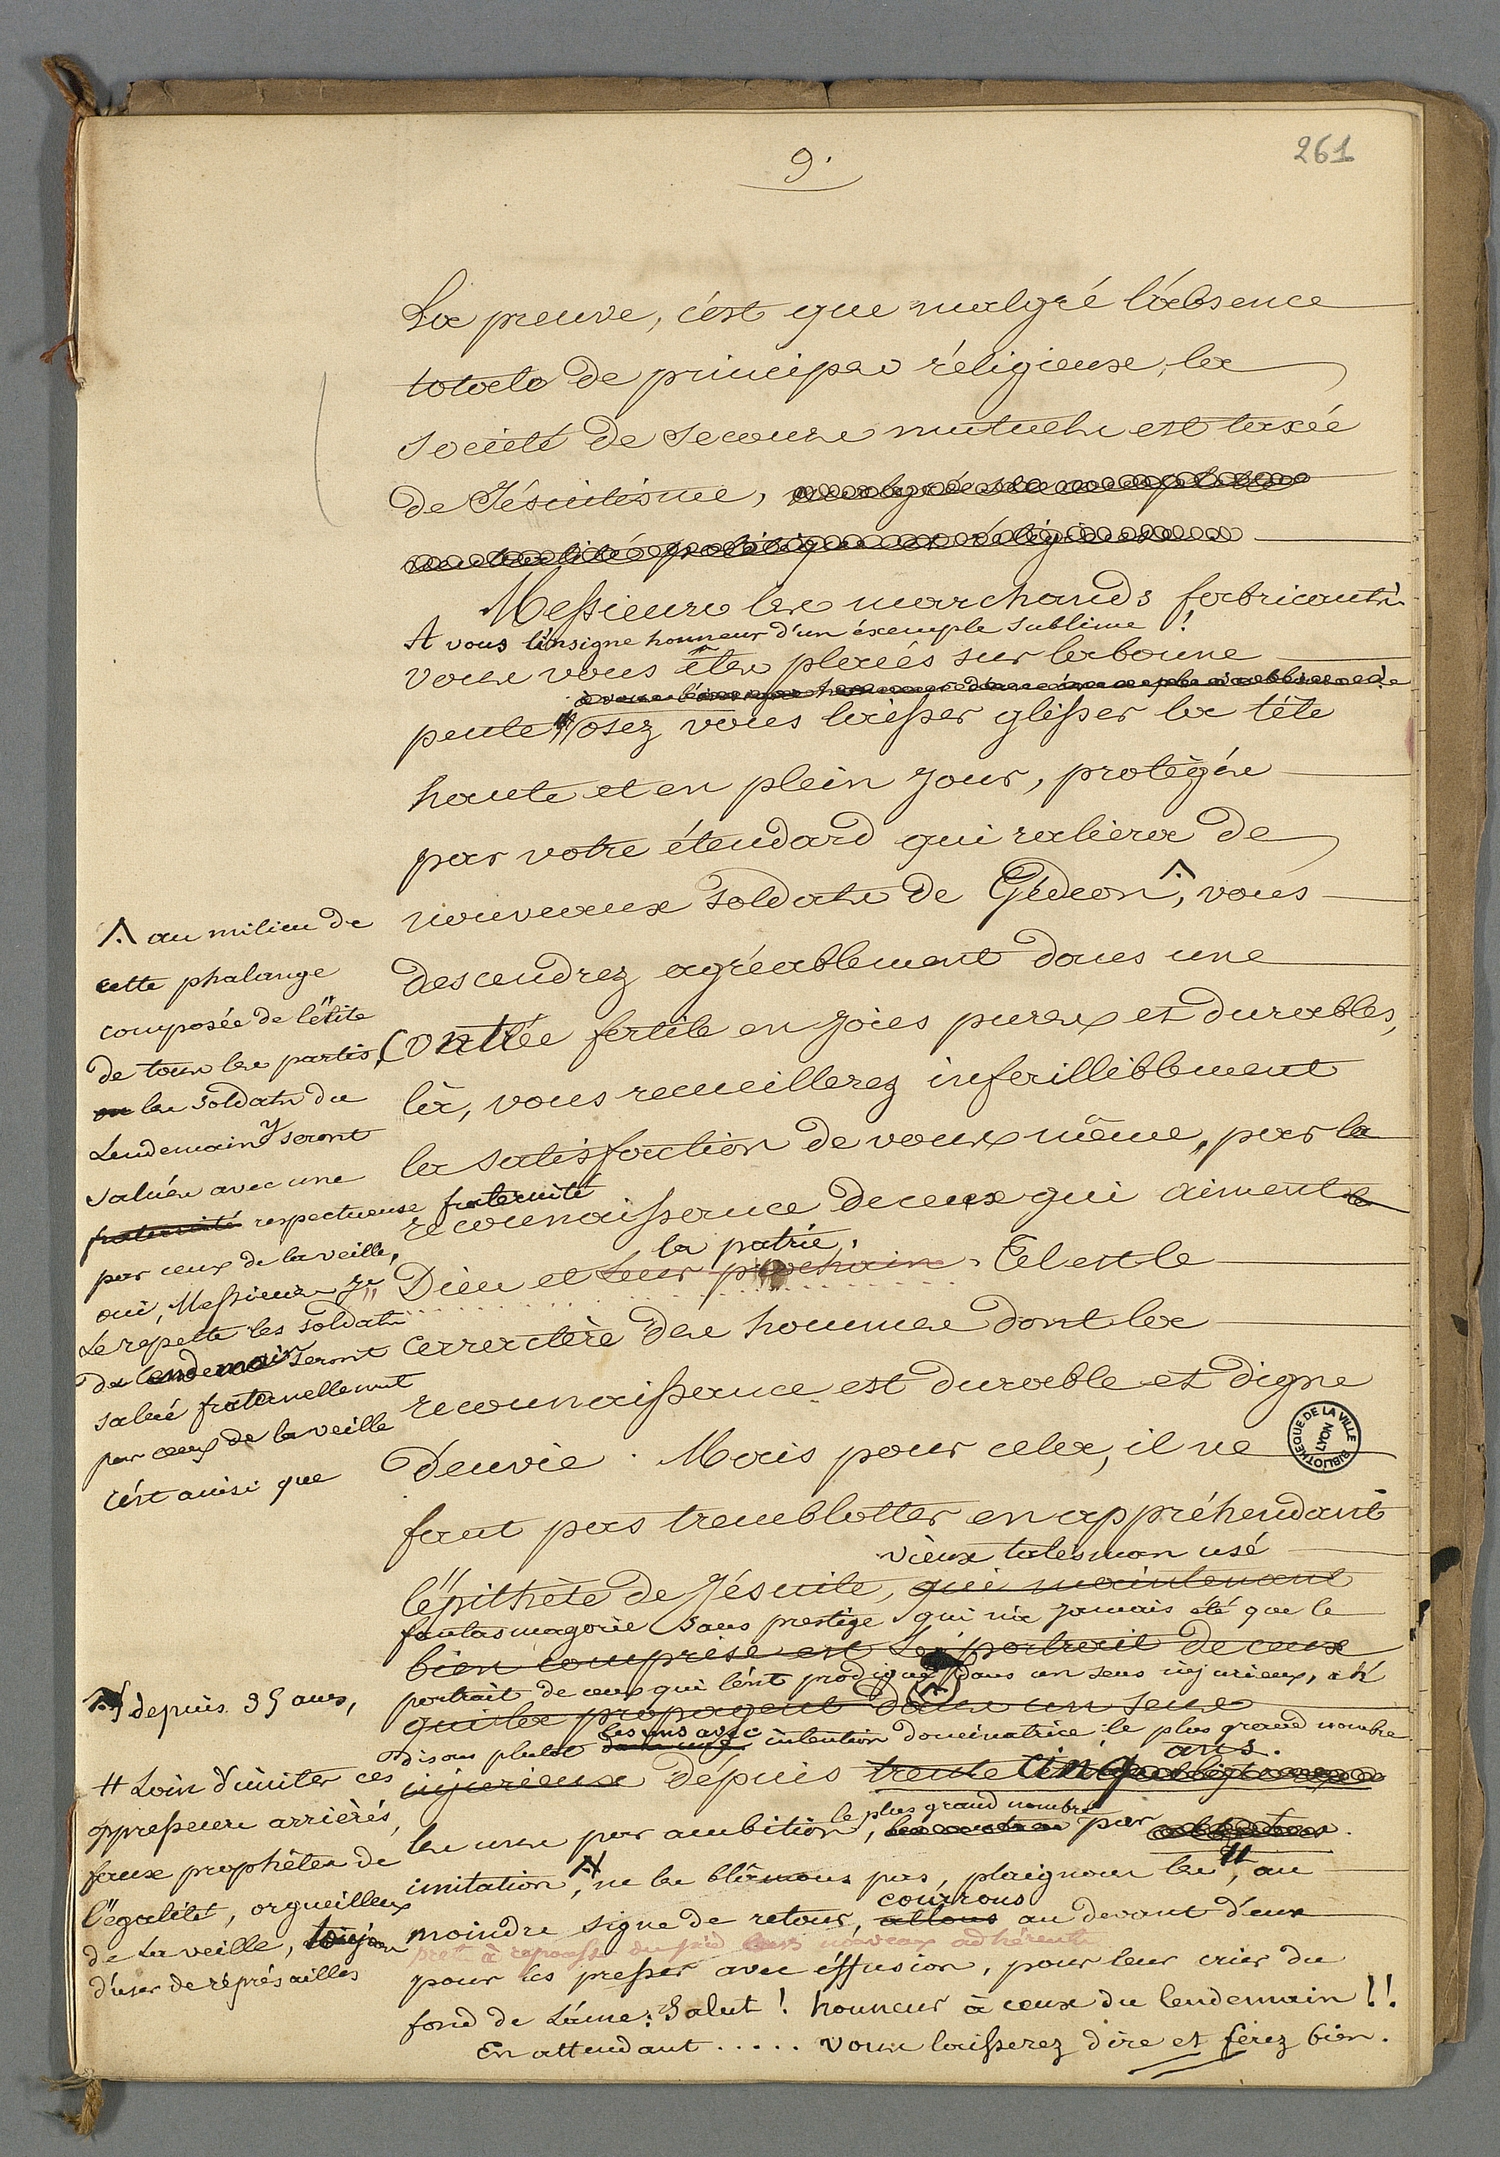 261
9.
La preuve, c'est que malgré l'absence
totale de principes réligieux, la
société de secours mutuels est taxée
de Jésuitisme, malgré sa complette
neutralité politique et réligieuse
Messieurs les marchands fabricants
A vous l'insigne honneur d'un éxemple sublime !
vous vous êtes placés sur la bonne
à vous l'insigne honneur d'un éxemple sublime
pente osez vous laisser glisser la tête
haute et en plein jour, protégés
par votre étendard qui raliera de
nouveaux soldats de Gédeon, vous
descendrez agréablement dans une
contrée fertile en joies pures et durables,
là, vous recueillerez infailliblement
la satisfaction de vous même, par la
reconnaissance de ceux qui aiment le
la patrie.
Dieu et leur prochain. Tel est le
carractère des hommes dont la
reconnaissance est durable et digne
d'envie. Mais pour cela, il ne
faut pas tremblotter en appréhendant
vieux talesman usé
l'épithète de Jésuite, qui maintenant
fantasmagorie sans prestige qui n'a jamais été que le
bien comprise est le portrait de ceux
portrait de ceux qui l'ont prodigué dans un sens injurieux, ah
qui la propagent dans un sens
disons plutôt les uns avec intention dominatrice le plus grand nombre
ans.
injurieux dépuis trente cinq
le plus grand nombre
les uns par ambition, les autres par
imitation, ne les blâmons pas, plaignons les, au
courrons
moindre signe de retour, allons au devant d'eux
pret à repousser du pied leurs nouveaux adhérents
pour les presser avec éffusion, pour leur crier du
fond de l'âme: Salut ! honneur à ceux du lendemain !!
En attendant ..... vous laisserez dire et ferez bien.
au milieu de
cette phalange
composée de l'élite
de tous les partis,
les soldats du
Lendemain y seront
salués avec une
fraternité respectueuse fraternité
par ceux de la veille,
oui, Messieurs je
Le repette les soldats
du lendemain seront
salué fraternellement
par ceux de la veille
c'est ainsi que
depuis 35 ans,
# Loin d'imiter ces
oppresseurs arrièrés,
faux prophètes de
l'égalité, orgueilleux
de la veille,
d'user de réprésailles
BIBLIOTHEQUE DE LA VILLE
LYON